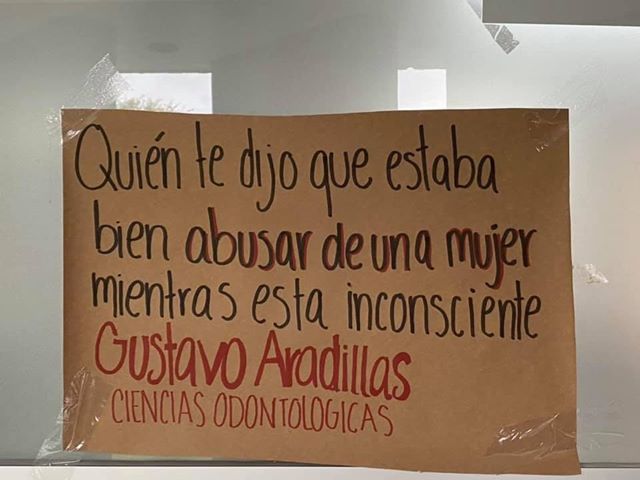 Quién te dijo que estaba
bien abusar de una mujer
mientras esta inconsciente
Gustavo Aradillas
CIENCIAS ODONTOLOGICAS